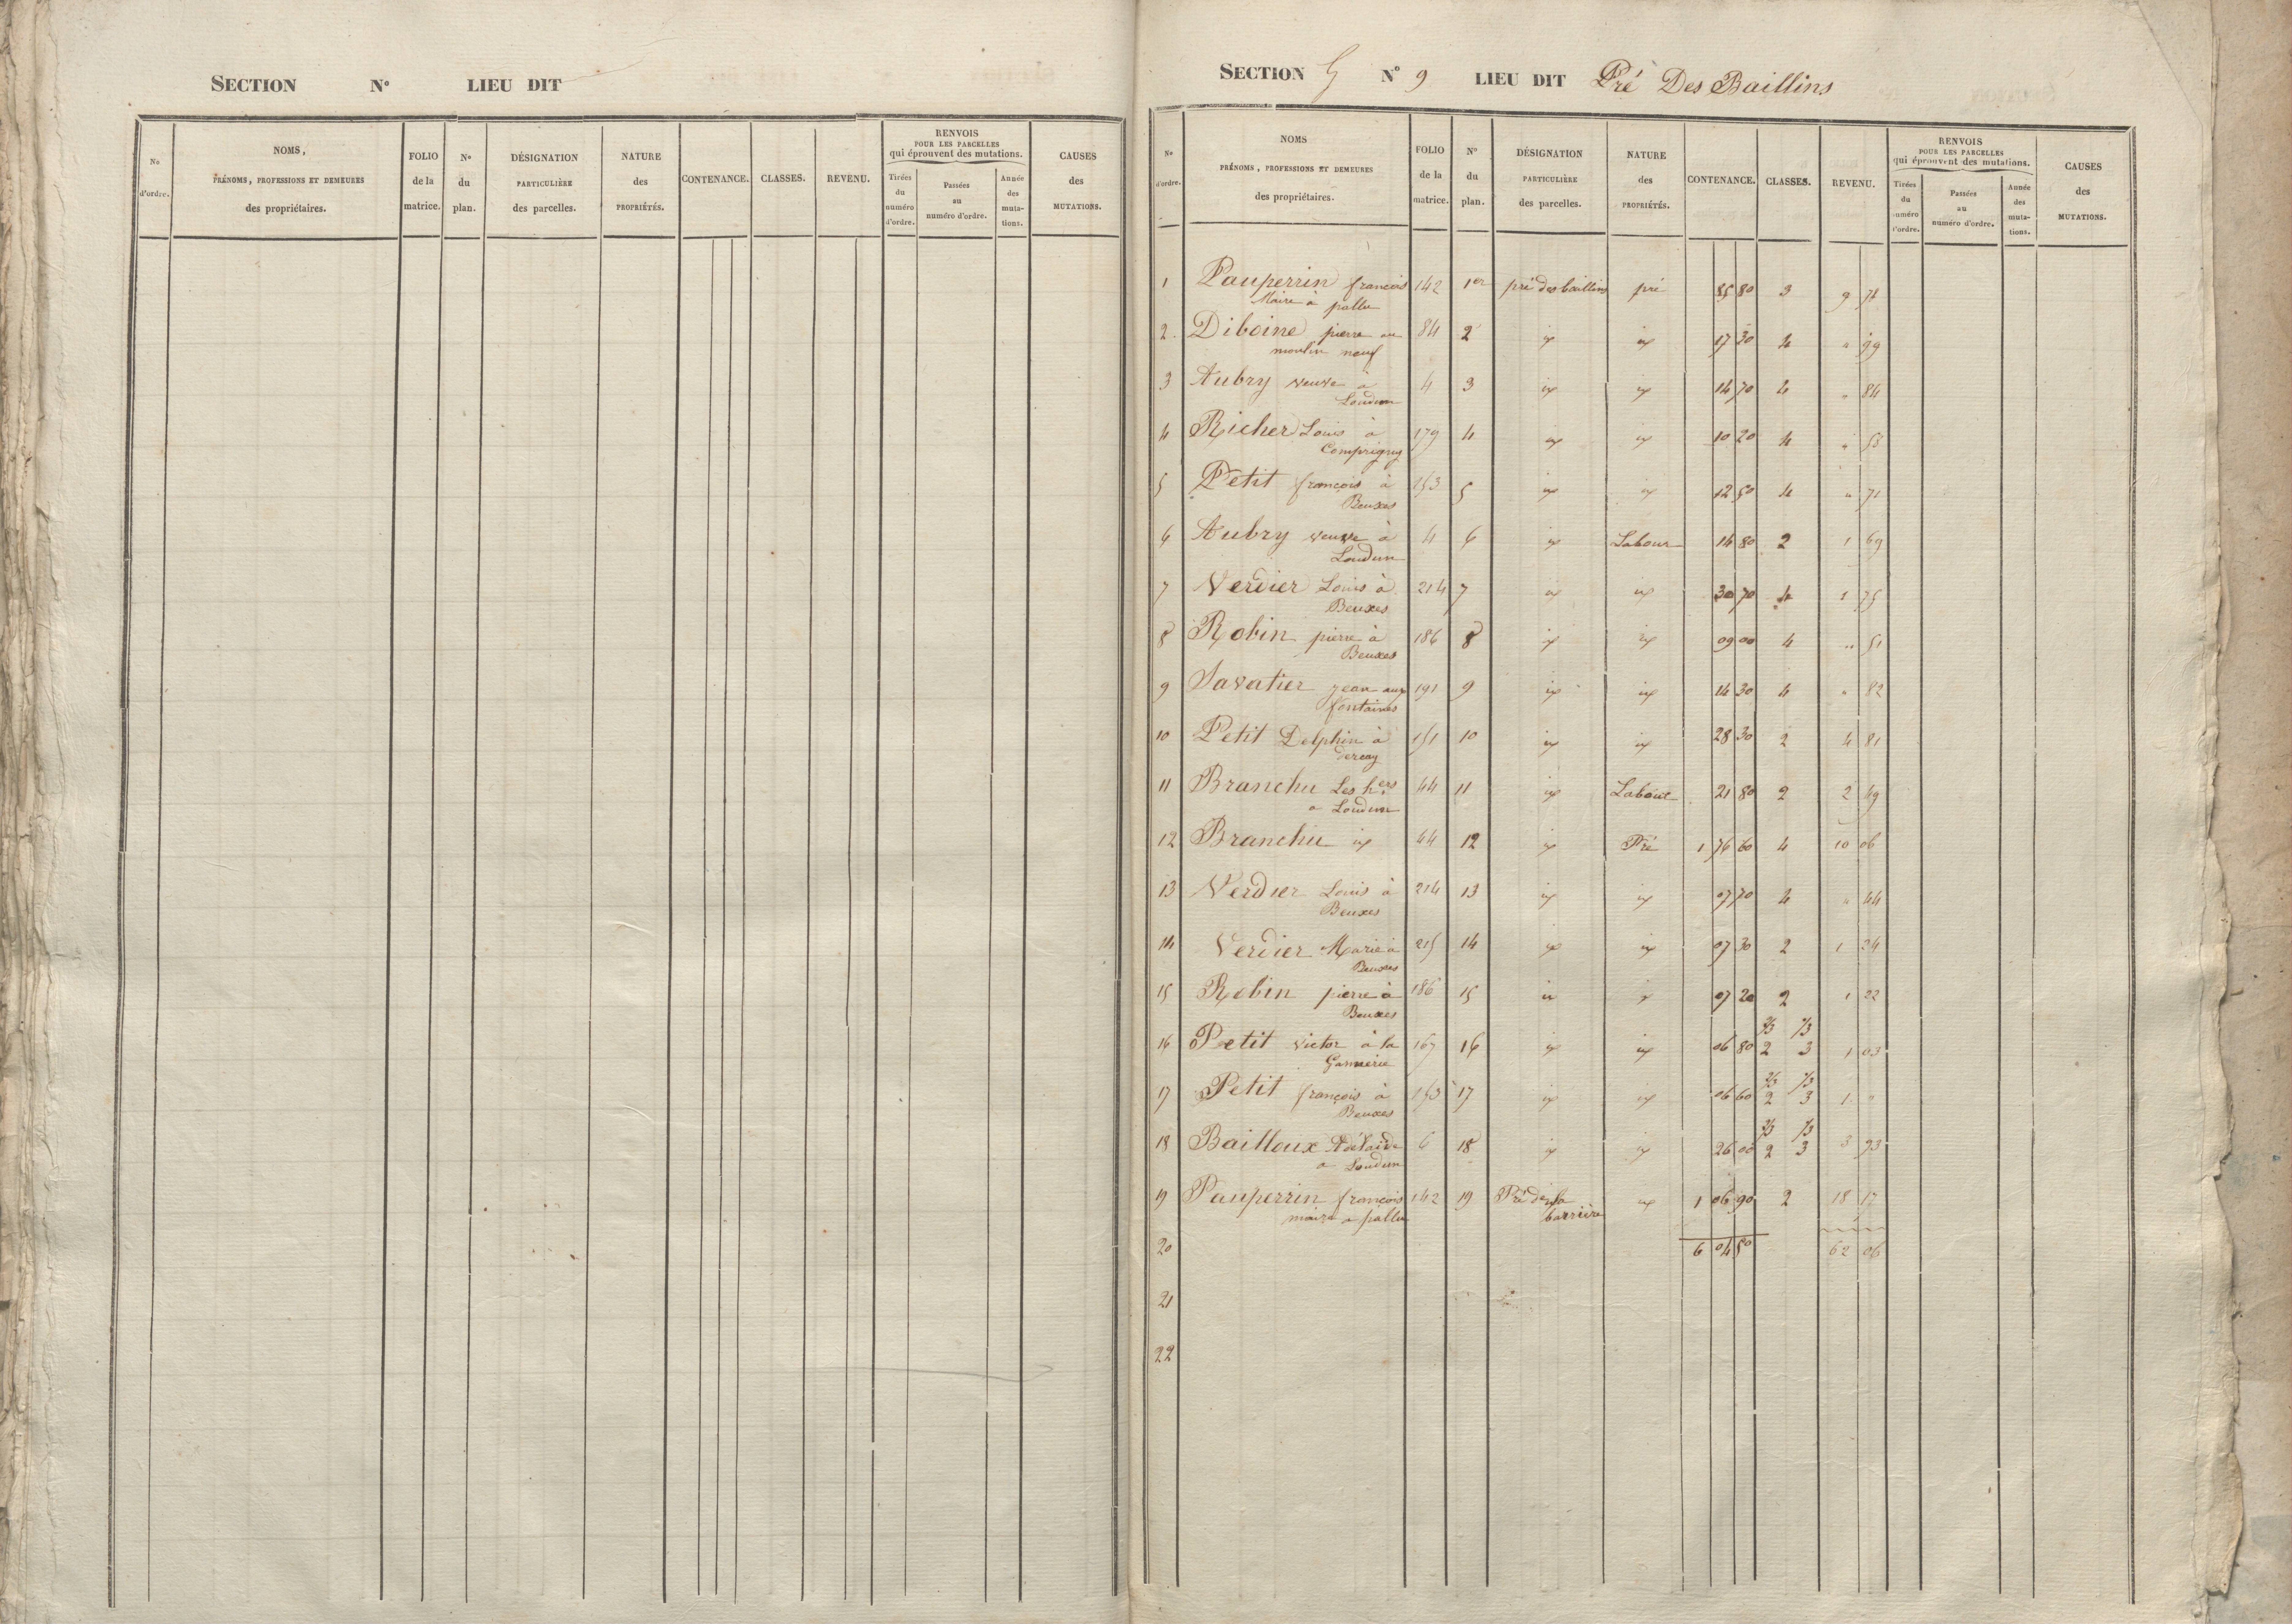 SECTION N° LIEU DIT
No d'ordre.
NOMS, PRÉNOMS, PROFESSIONS ET DEMEURES des propriétaires.
FOLIO de la matrice.
N° du plan.
DÉSIGNATION PARTICULIÈRE des parcelles.
NATURE des PROPRIÉTÉS.
CONTENANCE.
CLASSES.
REVENU.
RENVOIS POUR LES PARCELLES qui éprouvent des mutations.
Tirées du numéro d'ordre.
Passées au numéro d'ordre.
Année des muta-tions.
CAUSES des MUTATIONS.
SECTION G N° 9 LIEU DIT Pré Des Baillins
N° d'ordre.
NOMS PRÉNOMS, PROFESSIONS ET DEMEURES des propriétaires.
FOLIO de la matrice.
N° du plan.
DÉSIGNATION PARTICULIÈRE des parcelles.
NATURE des PROPRIÉTÉS.
CONTENANCE.
CLASSES.
REVENU.
RENVOIS POUR LES PARCELLES qui éprouvent des mutations.
Tirées du numéro d'ordre.
Passées au numéro d'ordre.
Année des muta-tions.
CAUSES des MUTATIONS.
1 Pauperrin françois 142 1er pré des baillins pré 85 80 3 9
Maire à pallu
2 Diboine pierre au 84 2 17 30 4 " 99
moulin neuf
3 Aubry veuve à 4 3 14 70 4 " 84
Loudun
4 Richer Louis à 179 4 10 20 4 " 58
Comprigny
5 Petit françois à 153 5 12 50 4 " 71
Beuxes
6 Aubry veuve à 4 6 Labour 14 80 2 1 69
Loudun
7 Verdier Louis à 214 7 30 70 4 1 75
Beuxes
8 Robin pierre à 186 8 09 00 4 " 51
Beuxes
9 Savatier jean aux 191 9 14 30 4 " 82
fontaines
10 Petit Delphin à 151 10 28 30 2 4 81
dercay
11 Branchu Les hers 44 11 Labour 21 80 2 2 49
a Loudun
12 Branchu 44 12 Pré 1 76 60 4 10 06
13 Verdier Louis à 214 13 07 70 4 " 44
Beuxes
14 Verdier Marie à 215 14 07 30 2 1 24
Beuxes
15 Robin pierre à 186 15 07 20 2 1 22
Beuxes
2/3 1/3
16 Petit victor à la 167 16 06 80 2 3 1 03
2/3 1/3
17 Petit françois à 153 17 06 60 2 3 1 "
Beuxes
2/3 1/3
18 Bailloux Adélaide 6 18 26 00 2 3 3 93
a Loudun
19 Pauperrin françois 142 19 Pré de la 1 06 90 2 18 17
maire a pallu barrière
20 6 04 50 62 06
21
22